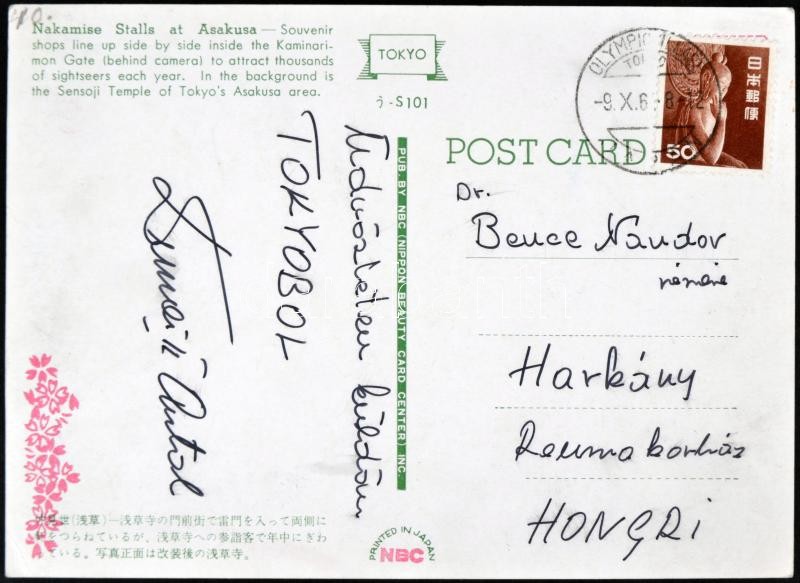 Nakamise Stalls at Asakusa — Souvenir
shops line up side by side inside the Kaminari-
mon Gate (behind camera) to attract thousands
of sightseers each year. In the background is
the Sensoji Temple of Tokyo's Asakusa area.
TOKYO
う-S101
Üdvözletem küldöm
TOKYOBOL
Antal
PUB. BY NBC (NIPPON BEAUTY CARD CENTER) INC.
POST CARD
OLYMPIC
-9.X.6
8-12
日本郵便
50
Dr.
Bence Nándor
részére
Harkány
Reumakorház
HONGRI
世(浅草)—浅草寺の門前街で雷門を入って両側に
をつらねているが、浅草寺への参詣客で年中にぎわ
ている。写真正面は改装後の浅草寺。
PRINTED IN JAPAN
NBC